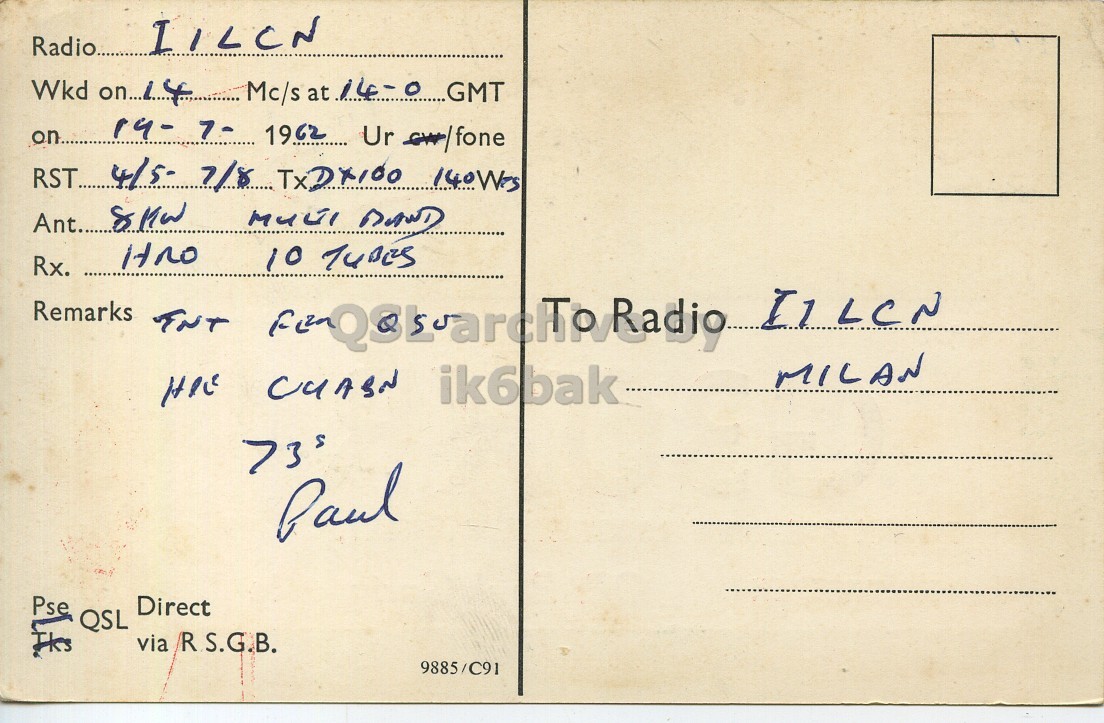 Radio I1LCN
Wkd on 14 Mc/s at 14-0 GMT
on 19-7- 1962 Ur cw/fone
RST 4/5- 7/8 Tx DX100 140 W
Ant. MULTI BAND
Rx. HRO 10 TUBES
Remarks FER QSO
73s
Paul
Pse QSL Direct
Tks via R S.G.B.
9885/C91
To Radio I1LCN
MILAN
QSL archive by
ik6bak